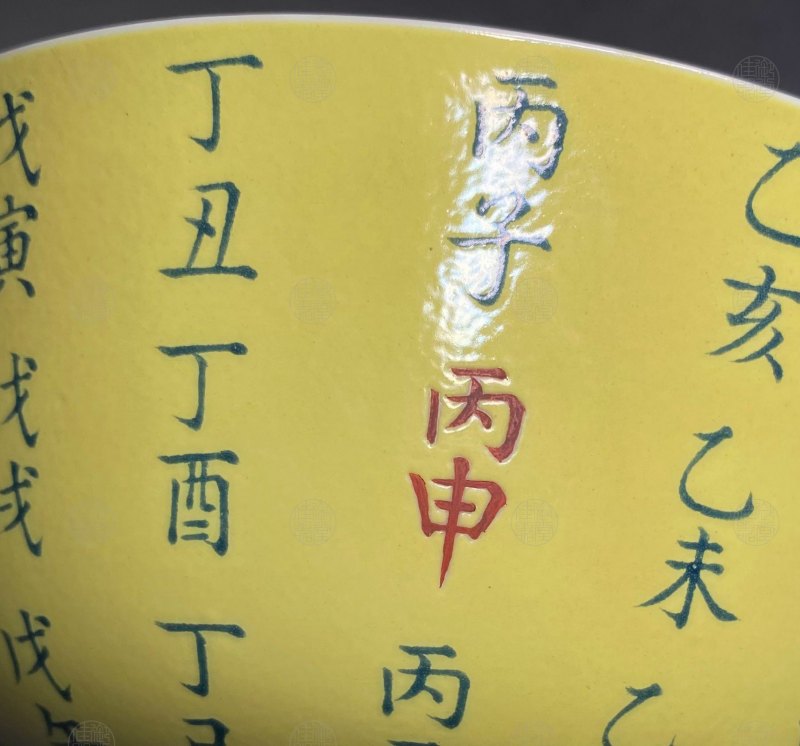 乙亥 乙未 乙
丙子 丙申 丙
丁丑 丁酉 丁
戊寅 戊戌 戊